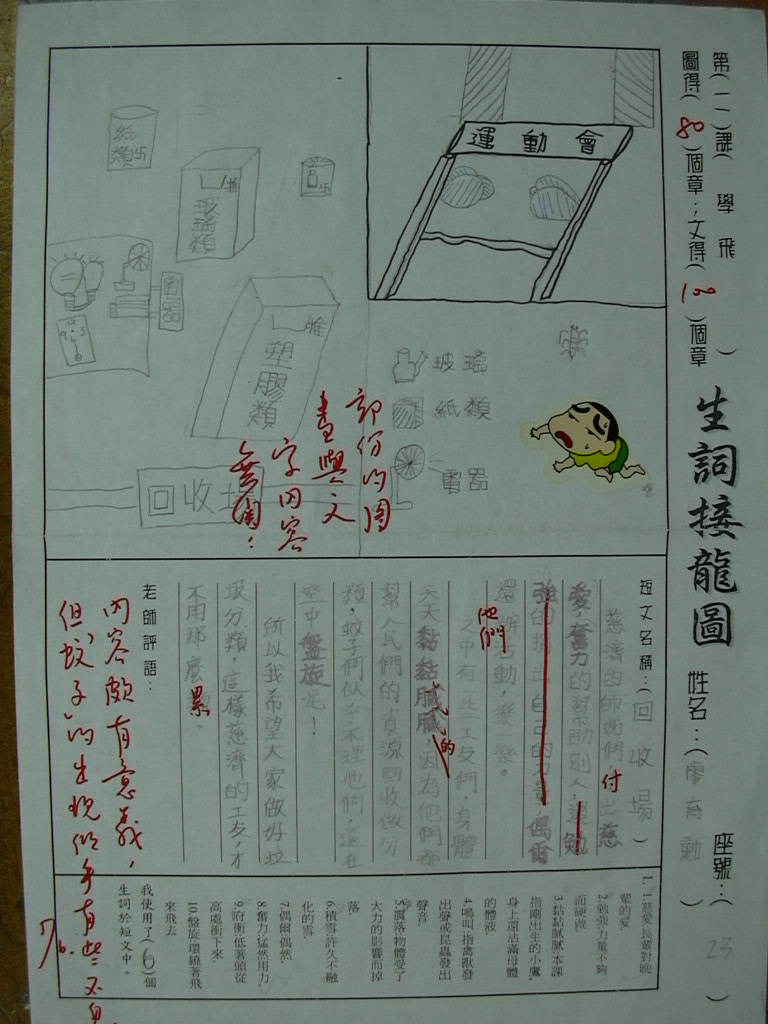 第(一一)課( 學 飛 )
圖得( 80 )個章;文得( 100 )個章
生詞接龍圖
姓名:(廖育勳)
座號:( 23 )
運動會
紙類
玻璃類
電器
塑膠類
玻璃
紙類
電器
回收場
部份的圖
畫與文
字內容
無關!
短文名稱:(回收場)
慈濟的師姊們,付出慈
愛,奮力的幫助別人,還勉
強的捐出自己的力量,偶爾
還辦活動,樂一樂。
他們
之中有些工友們,身體
天天黏黏膩膩的,因為他們都
幫人民們的資源回收做分
類,蚊子們似乎不理他們,還在
空中盤旋呢!
所以我希望大家做好垃
圾分類,這樣慈濟的工友,才
不用那麼累。
老師評語:
內容頗有意義,
但“蚊子”的出現似乎有些不
7/6.
1.慈愛:長輩對晚
輩的愛
2.勉強:力量不夠
而硬做
3.黏黏膩膩:本課
指剛出生的小鷹,
身上還沾滿母體
的體液
4.鳴叫:指禽獸發
出聲或昆蟲發出
聲音
5.震落:物體受了
大力的影響而掉
落
6.積雪:許久不融
化的雪.
7.偶爾:偶然.
8.奮力:猛然用力.
9.俯衝:低著頭從
高處衝下來.
10.盤旋:環繞著飛
來飛去
我使用了(6)個
生詞於短文中。